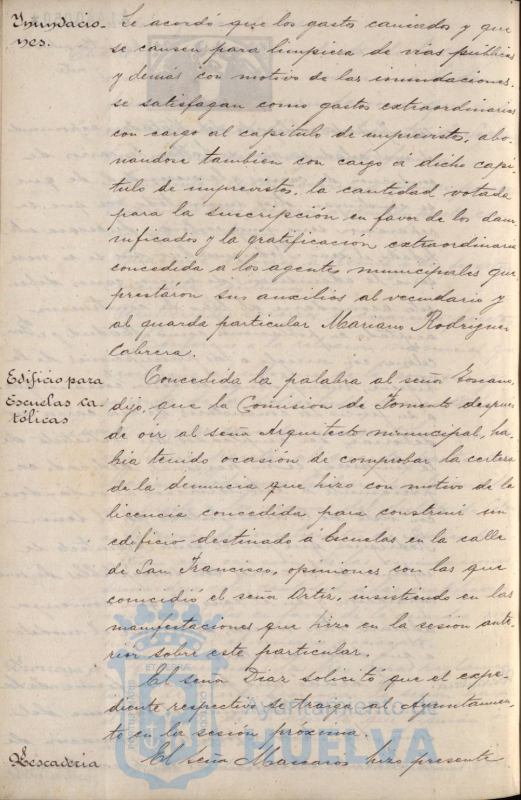 Inundacio-
nes.
Se acordo que los gastos causados y que
se causen para limpieza de vias publicas
y demás con motivo de las inundaciones,
se satisfagan como gastos extraordinarios
con cargo al capitulo de imprevistos, abo-
nándose tambien con cargo á dicho capi-
tulo de imprevistos, la cantidad votada
para la suscripción en favor de los dam-
nificados y la gratificación extraordinaria
concedida a los agentes municipales que
prestáron sus auxilios al vecindario y
al guarda particular Mariano Rodriguez
Cabrera.
Edificio para
Escuelas Ca-
tólicas
Concedida la palabra al señor Toscano,
dijo, que la Comision de Fomento despues
de oir al señor Arquitecto municipal, ha-
bia tenido ocasión de comprobar la certeza
de la denuncia que hizo con motivo de la
licencia concedida para construir un
edificio destinado á Escuelas en la calle
de San Francisco, opiniones con las que
coincidió el señor Ortíz, insistiendo en las
manifestaciones que hizo en la sesión ante-
rior sobre este particular.
El señor Diaz solicitó que el expe-
diente respectivo se traiga al Ayuntamien-
to en la sesión próxima.
Pescaderia
El señor hizo presente
Ayuntamiento de
HUELVA